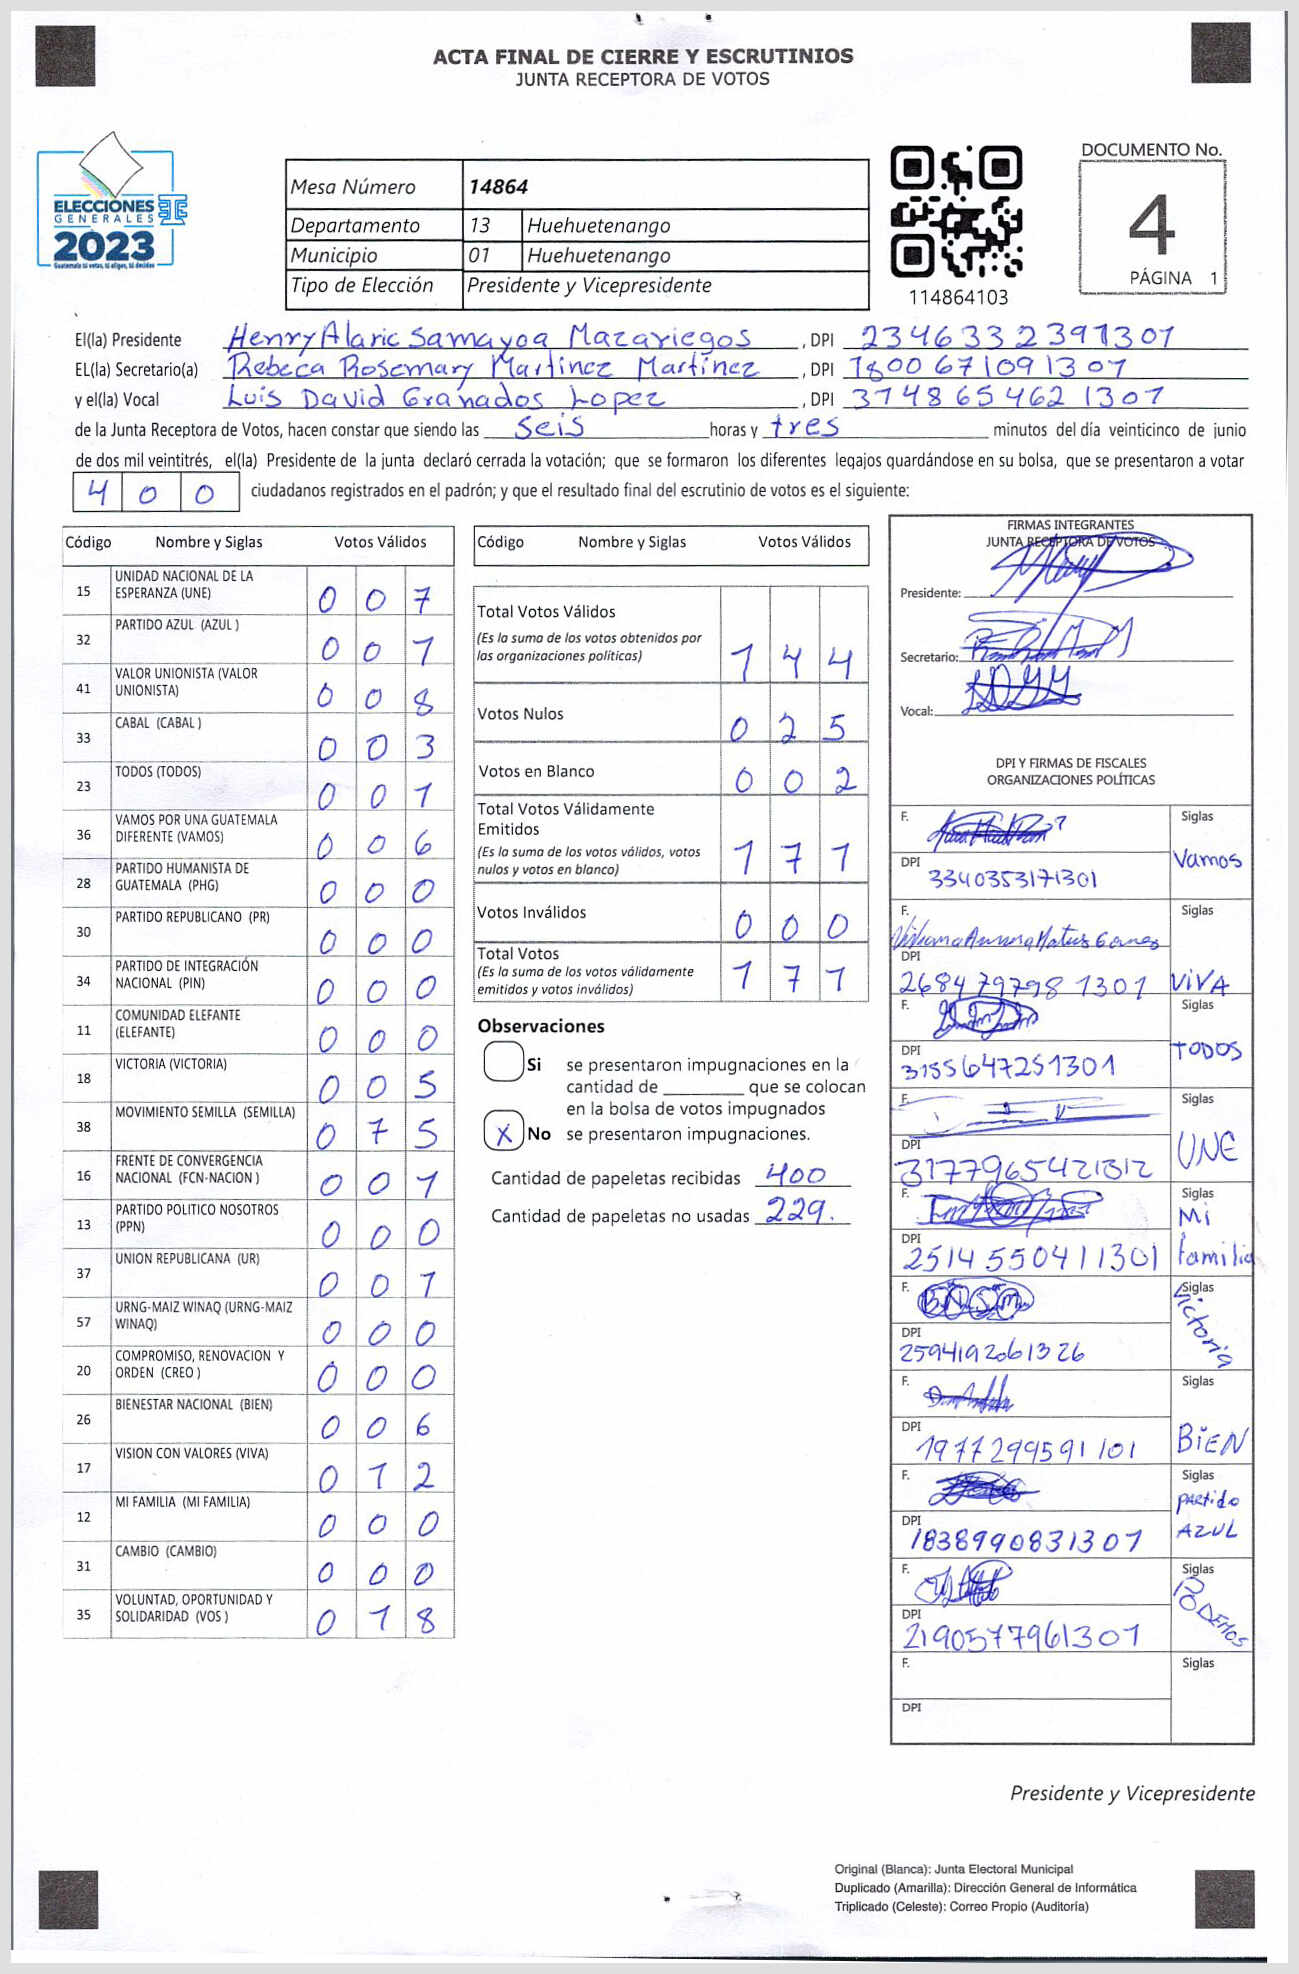 ACTA FINAL DE CIERRE Y ESCRUTINIOS
JUNTA RECEPTORA DE VOTOS
ELECCIONES
GENERALES
2023
Guatemala tú votas, tú eliges, tú decides
Mesa Número 14864
Departamento 13 Huehuetenango
Municipio 01 Huehuetenango
Tipo de Elección Presidente y Vicepresidente
114864103
DOCUMENTO No.
4
PÁGINA 1
El(la) Presidente Henry Alaric Samayoa Mazariegos, DPI 2346332391301
EL(la) Secretario(a) Rebeca Rosemary Martínez Martínez, DPI 1800671091307
y el(la) Vocal Luis David Granados Lopez, DPI 3748654621307
de la Junta Receptora de Votos, hacen constar que siendo las seis horas y tres minutos del día veinticinco de junio
de dos mil veintitrés, el(la) Presidente de la junta declaró cerrada la votación; que se formaron los diferentes legajos quardándose en su bolsa, que se presentaron a votar
400 ciudadanos registrados en el padrón; y que el resultado final del escrutinio de votos es el siguiente:
Código Nombre y Siglas Votos Válidos
15 UNIDAD NACIONAL DE LA ESPERANZA (UNE) 007
32 PARTIDO AZUL (AZUL ) 001
41 VALOR UNIONISTA (VALOR UNIONISTA) 008
33 CABAL (CABAL ) 003
23 TODOS (TODOS) 001
36 VAMOS POR UNA GUATEMALA DIFERENTE (VAMOS) 006
28 PARTIDO HUMANISTA DE GUATEMALA (PHG) 000
30 PARTIDO REPUBLICANO (PR) 000
34 PARTIDO DE INTEGRACIÓN NACIONAL (PIN) 000
11 COMUNIDAD ELEFANTE (ELEFANTE) 000
18 VICTORIA (VICTORIA) 005
38 MOVIMIENTO SEMILLA (SEMILLA) 075
16 FRENTE DE CONVERGENCIA NACIONAL (FCN-NACION ) 001
13 PARTIDO POLITICO NOSOTROS (PPN) 000
37 UNION REPUBLICANA (UR) 001
57 URNG-MAIZ WINAQ (URNG-MAIZ WINAQ) 000
20 COMPROMISO, RENOVACION Y ORDEN (CREO ) 000
26 BIENESTAR NACIONAL (BIEN) 006
17 VISION CON VALORES (VIVA) 012
12 MI FAMILIA (MI FAMILIA) 000
31 CAMBIO (CAMBIO) 000
35 VOLUNTAD, OPORTUNIDAD Y SOLIDARIDAD (VOS ) 018
Código Nombre y Siglas Votos Válidos
Total Votos Válidos 144
(Es la suma de los votos obtenidos por
las organizaciones políticas)
Votos Nulos 025
Votos en Blanco 002
Total Votos Válidamente
Emitidos 171
(Es la suma de los votos válidos, votos
nulos y votos en blanco)
Votos Inválidos 000
Total Votos 171
(Es la suma de los votos válidamente
emitidos y votos inválidos)
Observaciones
Si se presentaron impugnaciones en la
cantidad de ________ que se colocan
en la bolsa de votos impugnados
X No se presentaron impugnaciones.
Cantidad de papeletas recibidas 400
Cantidad de papeletas no usadas 229.
FIRMAS INTEGRANTES
JUNTA RECEPTORA DE VOTOS
Presidente:
Secretario:
Vocal:
DPI Y FIRMAS DE FISCALES
ORGANIZACIONES POLÍTICAS
F. Siglas Vamos
DPI 3340353171301
F. Siglas ViVA
DPI 2684797981301
F. Siglas TODOS
DPI 3155647251301
F. Siglas UNE
DPI 3177965421312
F. Siglas Mi familia
DPI 2514550411301
F. Siglas Victoria
DPI 2594192061326
F. Siglas BiEN
DPI 1977299591101
F. Siglas Partido AZUL
DPI 1838990831307
F. Siglas PODEMOS
DPI 2190577961301
F. Siglas
DPI
Presidente y Vicepresidente
Original (Blanca): Junta Electoral Municipal
Duplicado (Amarilla): Dirección General de Informática
Triplicado (Celeste): Correo Propio (Auditoría)